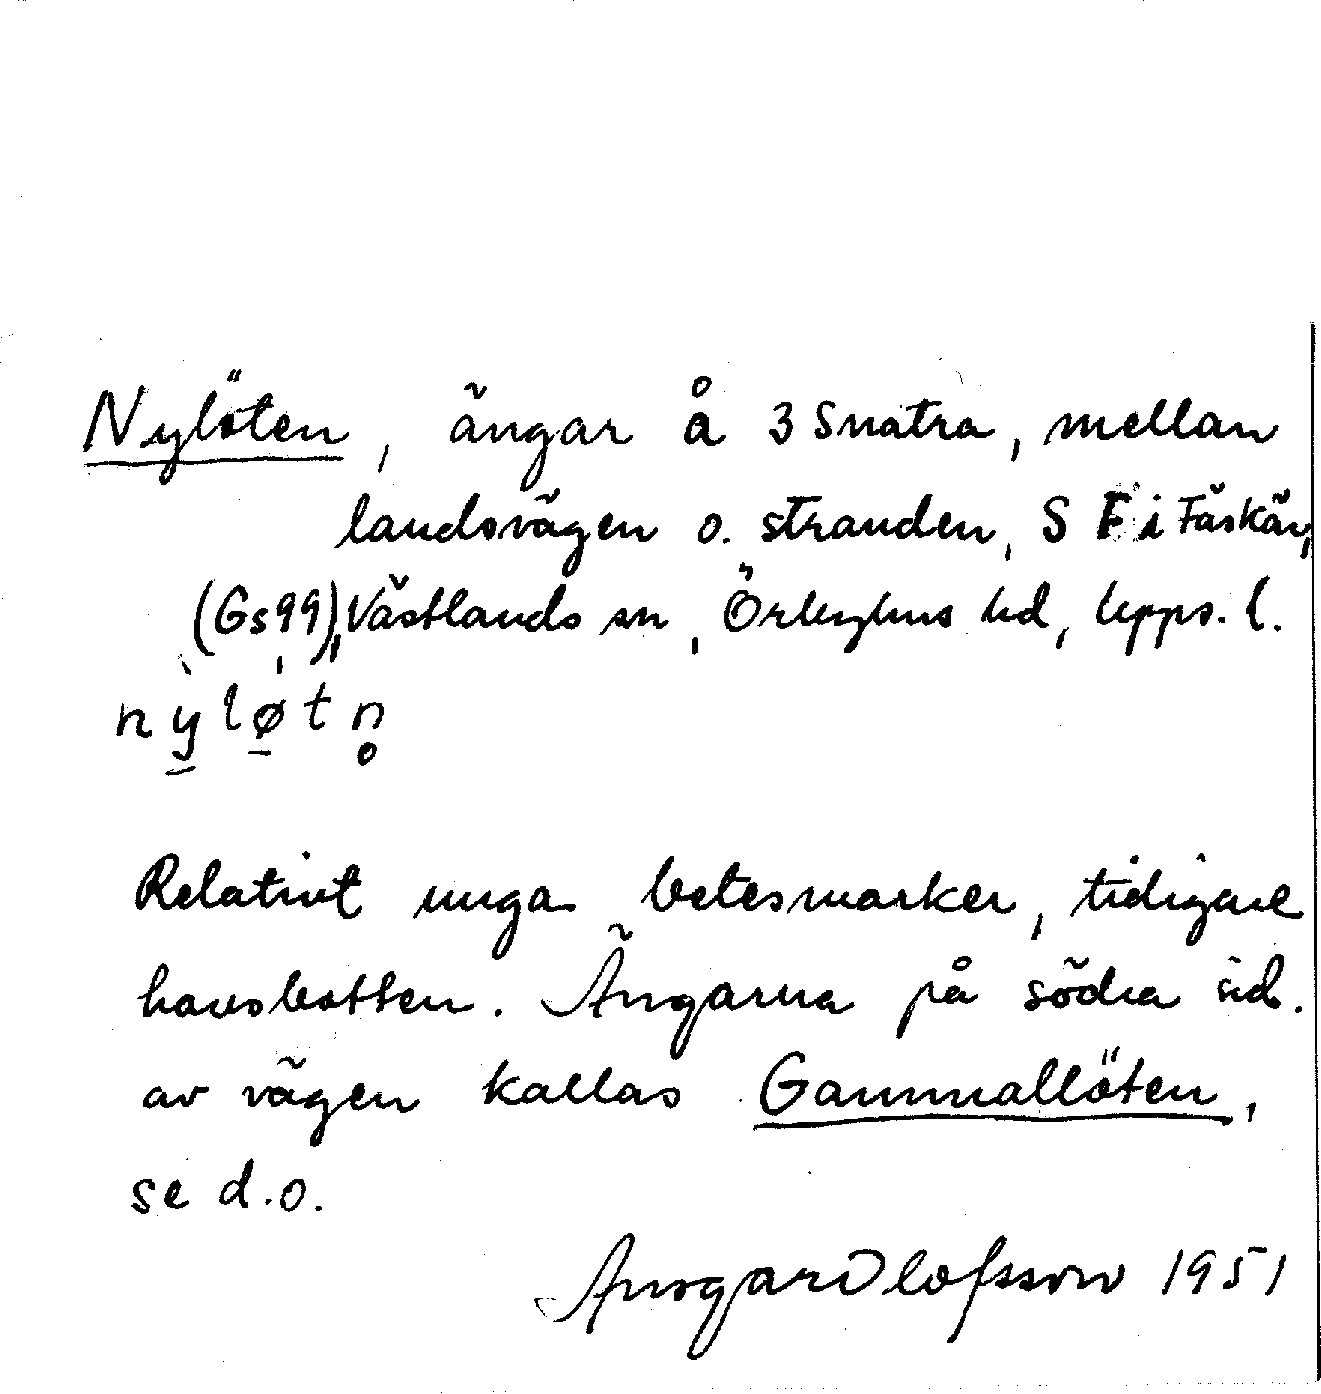 Nylöten, ängar å 3 Snatra, mellan
landsvägen o. stranden, S F i Fäskär,
(Gs99), Västlands sn, Örbyhus hd, Upps. l.
nỳlø̍tn̥
Relativt unga betesmarker, tidigare
havsbotten. Ängarna på södra sid.
av vägen kallas Gammallöten,
se d.o.
Ansgar Olofsson 1951